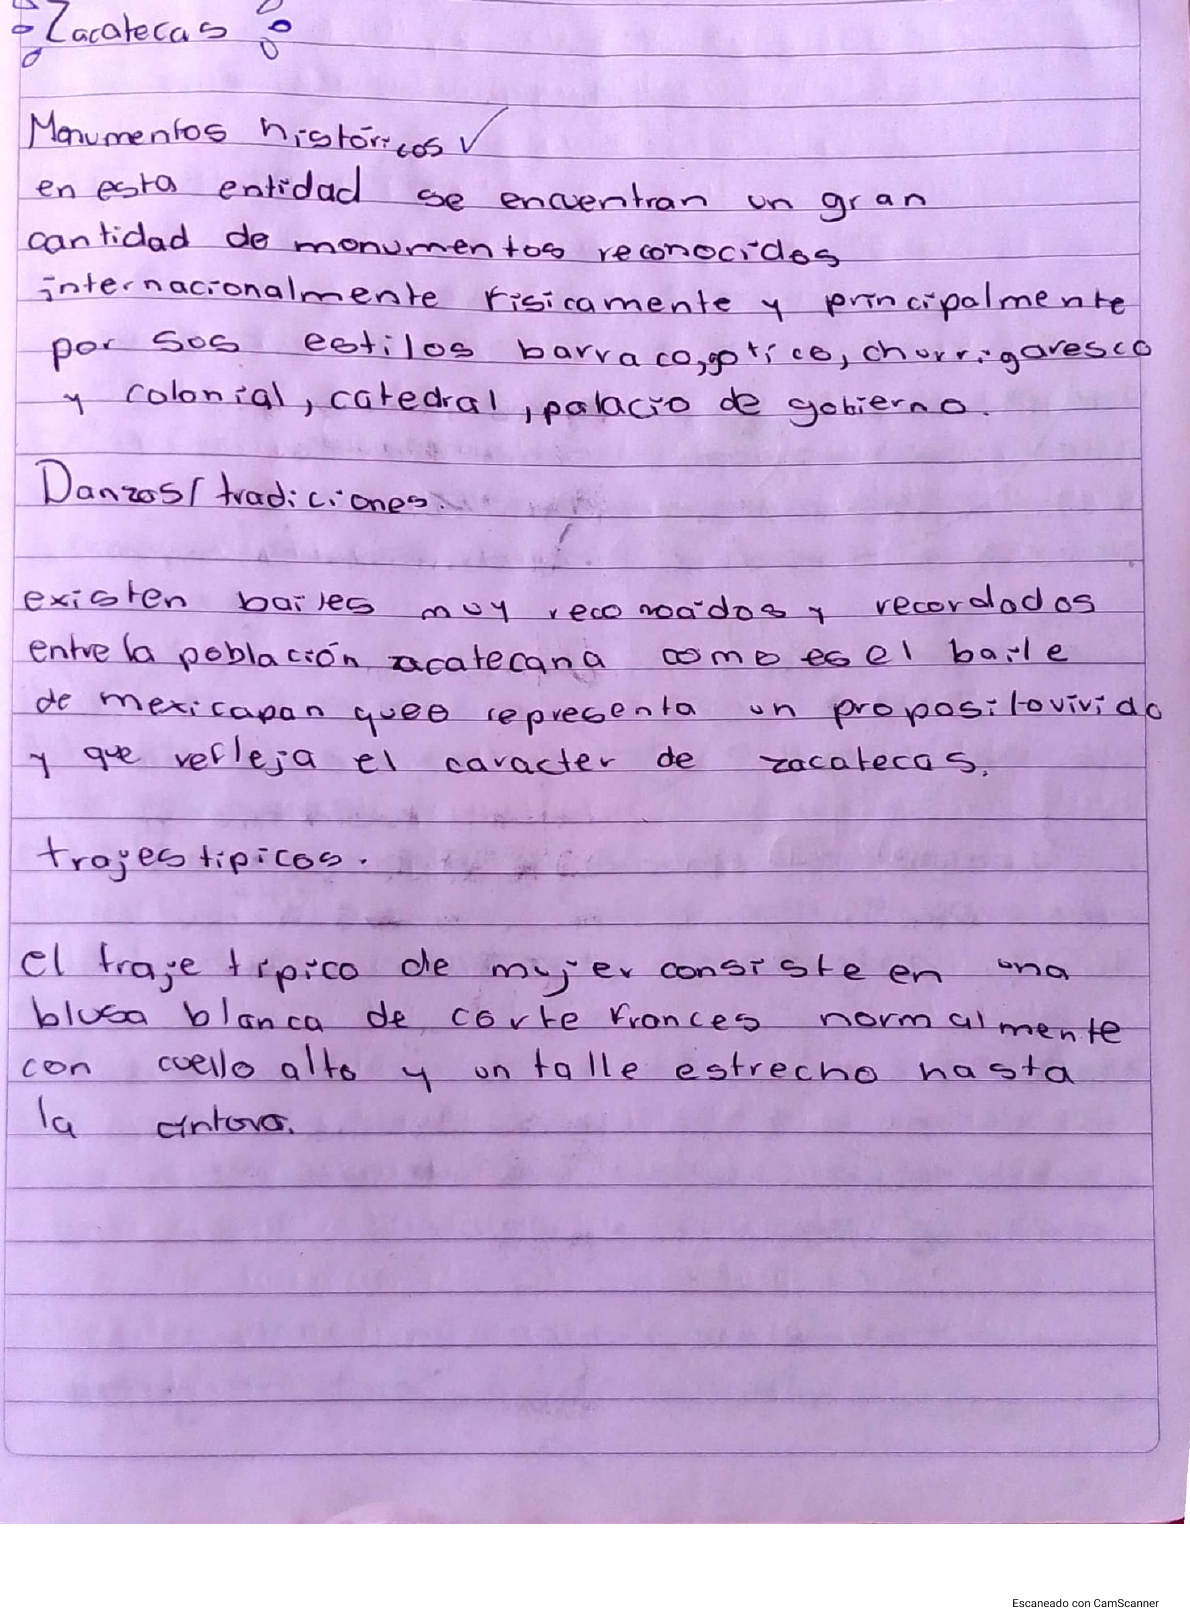 Zacatecas
Monumentos históricos ✓
en esta entidad se encuentran un gran
cantidad de monumentos reconocidos
internacionalmente físicamente y principalmente
por sus estilos barraco, gotico, churrigaresco
y colonial, catedral, palacio de gobierno.
Danzas/ tradiciones.
existen bailes muy reconocidos y recordados
entre la población zacatecana como es el baile
de mexicapan quee representa un proposito vivido
y que refleja el caracter de zacatecas.
trajes tipicos.
el traje tipico de mujer consiste en una
blusa blanca de corte frances normalmente
con cuello alto y un talle estrecho hasta
la cintura.
Escaneado con CamScanner